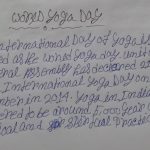 World Yoga Day
International Day of Yoga is
ed as the world Yoga day. Unit
nal Assembly has declared as
International Yoga Day on
mber in 2014. Yoga in India
ered to be around year
ical and Spiritual Practic